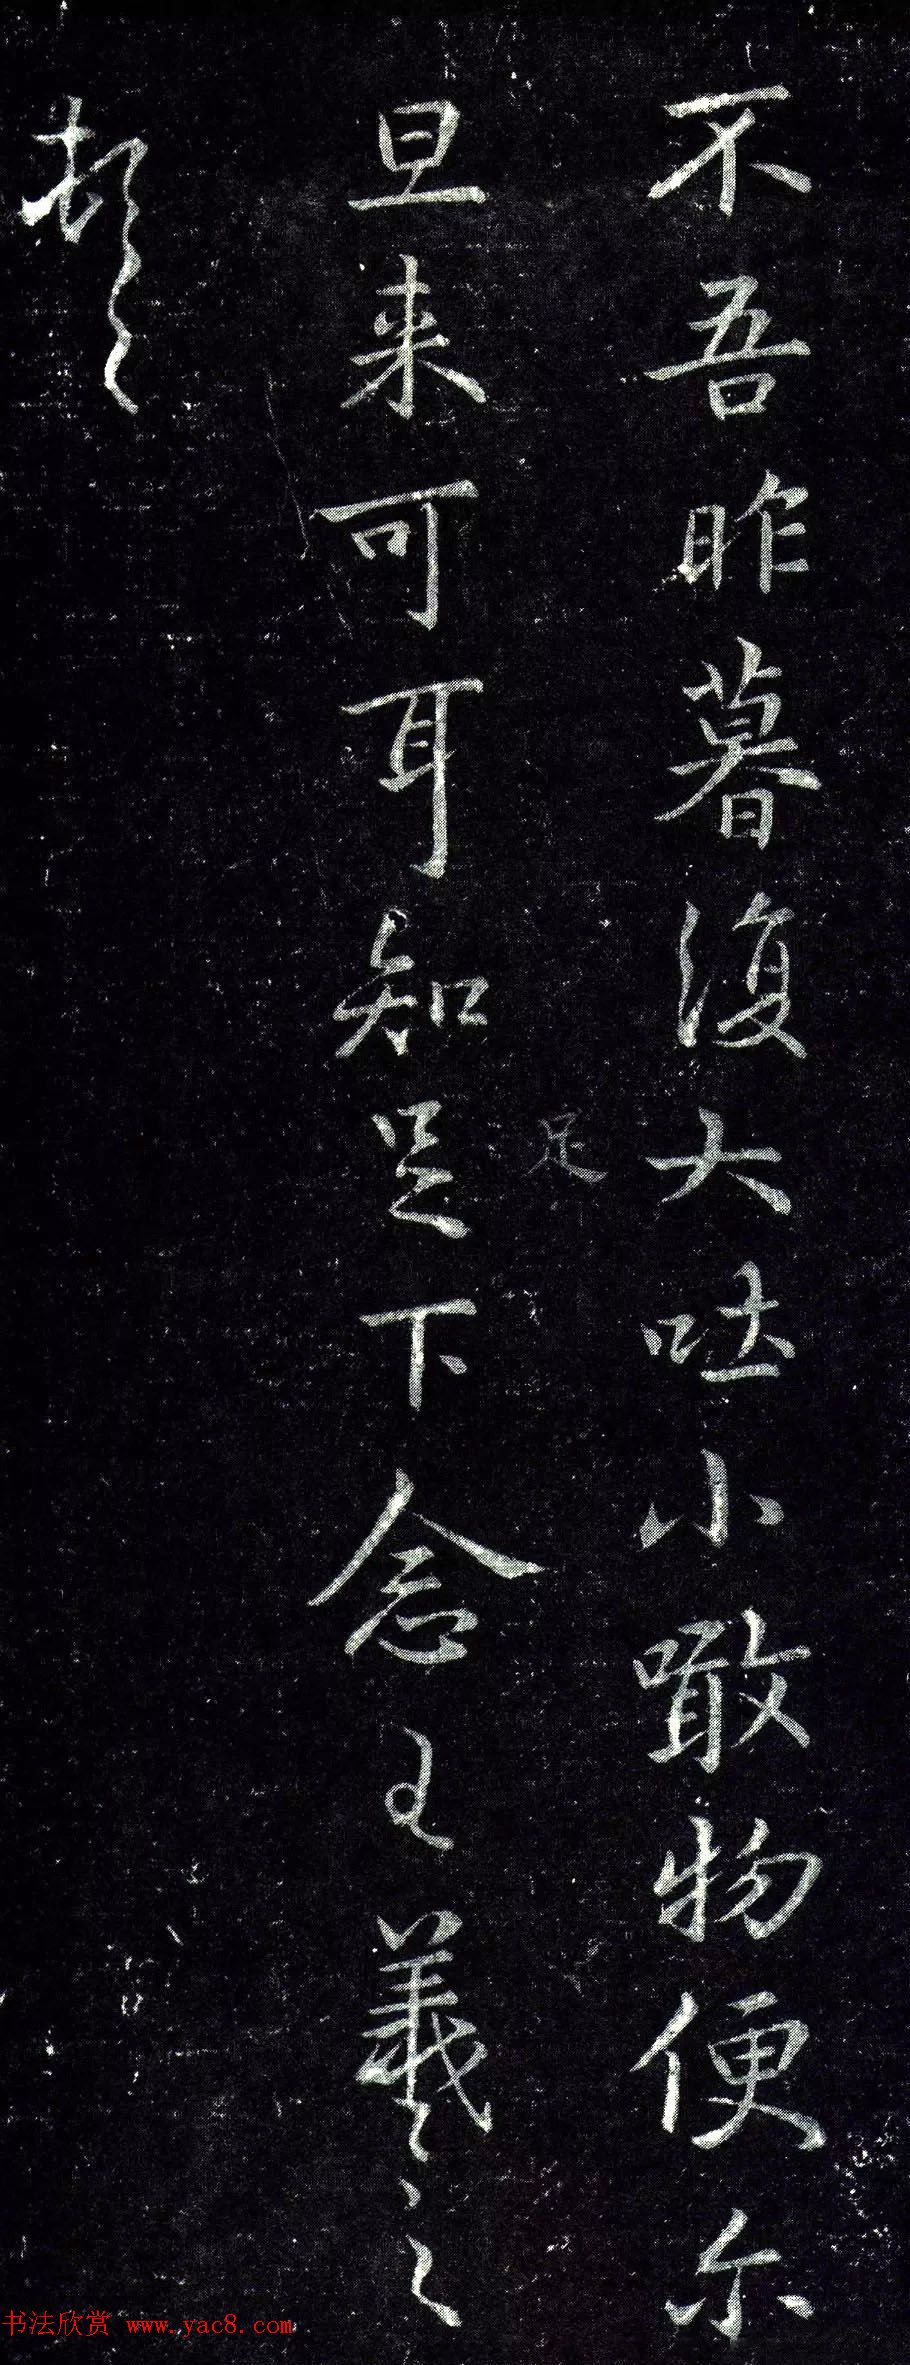 不吾昨暮復大吐小噉物便尔
旦来可耳知足下念王羲之
足
頓
书法欣赏 www.yac8.com